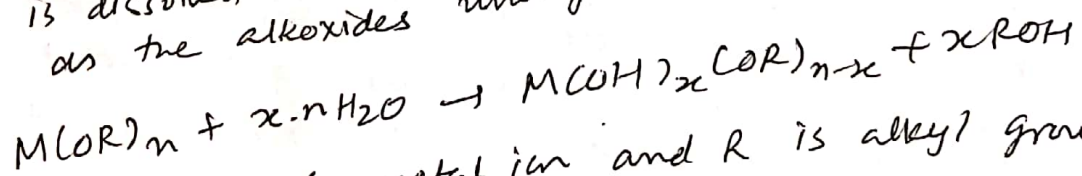 is
as the alkoxides
M(OR)n + x.nH2O → M(OH)x(OR)n-x + xROH
ion and R is alkyl